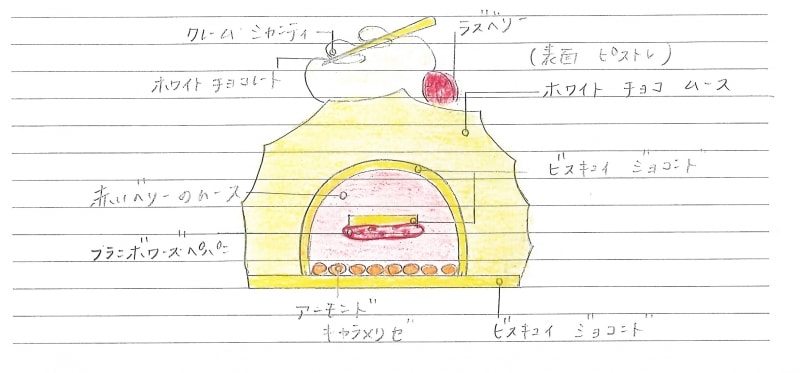 クレーム シャンティ
ラズベリー
(表面 ピストレ)
ホワイト チョコレート
ホワイト チョコ ムース
ビスキュイ ジョコンド
赤いベリーのムース
フランボワーズペパン
アーモンド
キャラメリゼ
ビスキュイ ジョコンド